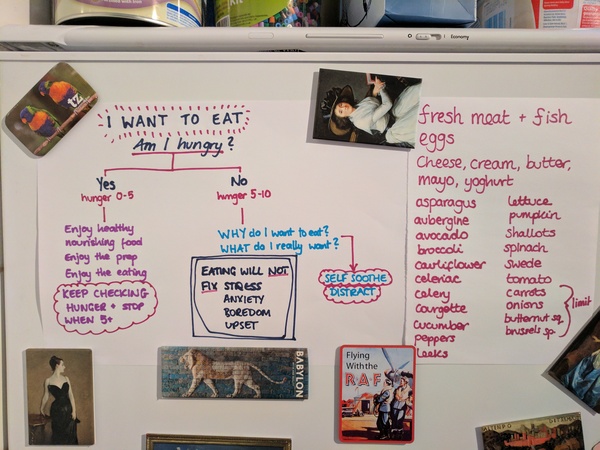 Economy
tz
I WANT TO EAT
Am I hungry?
Yes
hunger 0-5
Enjoy healthy
nourishing food
Enjoy the prep
Enjoy the eating
KEEP CHECKING
HUNGER + STOP
WHEN 5+
No
hunger 5-10
WHY do I want to eat?
WHAT do I really want?
EATING WILL NOT
FIX STRESS
ANXIETY
BOREDOM
UPSET
SELF SOOTHE
DISTRACT
fresh meat + fish
eggs
Cheese, cream, butter,
mayo, yoghurt
asparagus
aubergine
avocado
broccoli
cauliflower
celeriac
celery
courgette
cucumber
peppers
leeks
lettuce
pumpkin
shallots
spinach
swede
tomato
carrots
onions
butternut sq.
brussels sp.
limit
BABYLON
Flying
With the
RAF